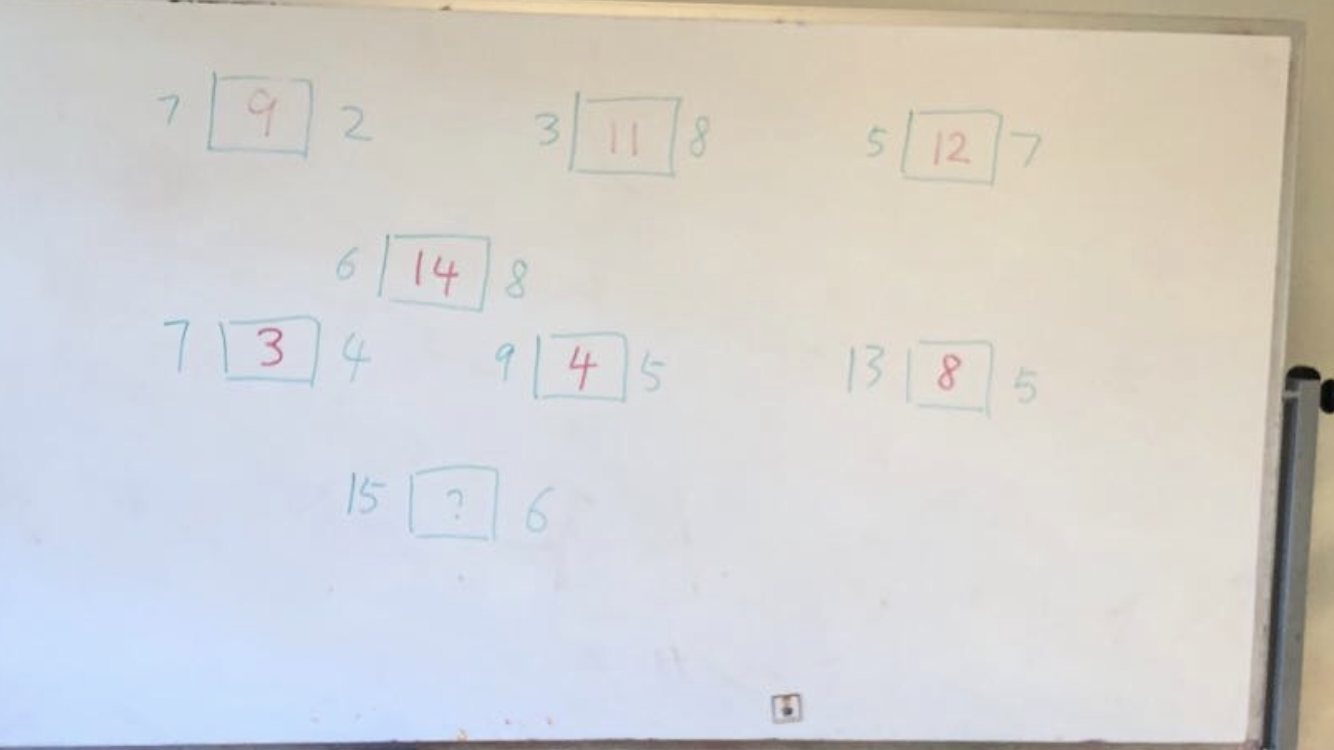 7 9 2 3 11 8 5 12 7
6 14 8
7 3 4 9 4 5 13 8 5
15 ? 6